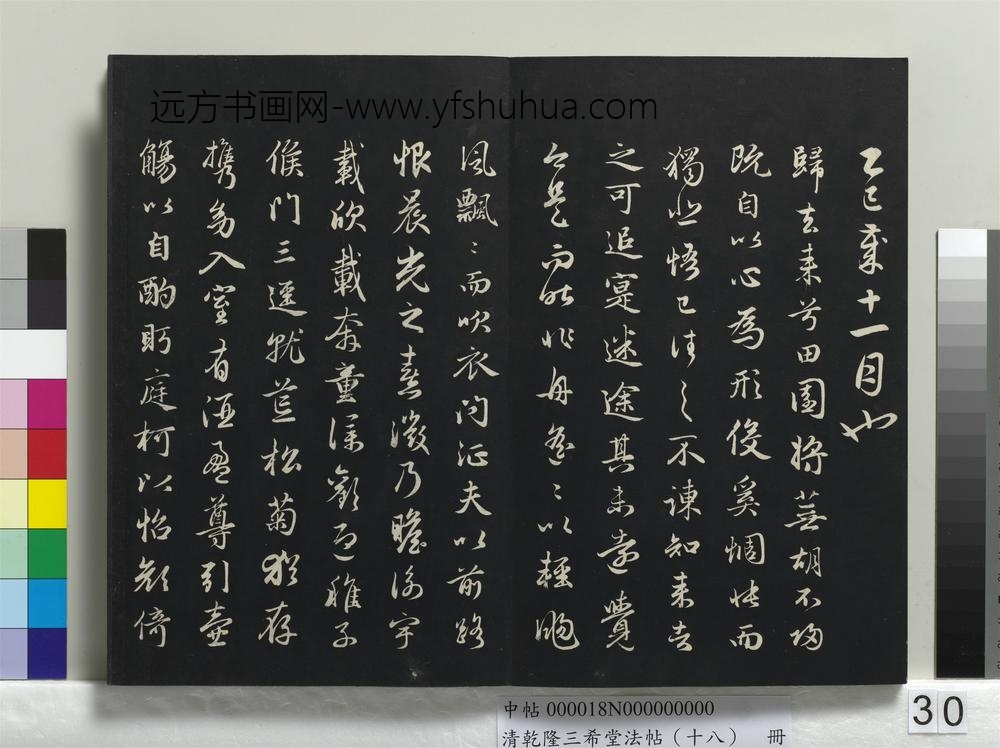 远方书画网-www.yfshuhua.com
乙巳歲十一月也
歸去來兮田園將蕪胡不歸
既自以心為形役奚惆悵而
獨悲悟已往之不諫知來者
之可追寔迷途其未遠覺
今是而昨非舟遙〻以輕颺
風飄〻而吹衣問征夫以前路
恨晨光之熹微乃瞻衡宇
載欣載奔童僕歡迎稚子
候門三逕就荒松菊猶存
攜幼入室有酒盈尊引壺
觴以自酌眄庭柯以怡顏倚
中帖 000018N000000000
清乾隆三希堂法帖（十八） 冊
30